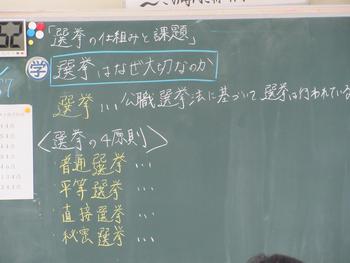 「選挙の仕組みと課題」
学 選挙はなぜ大切なのか
選挙…公職選挙法に基づいて選挙は行われている
<選挙の4原則>
普通選挙…
平等選挙…
直接選挙…
秘密選挙…